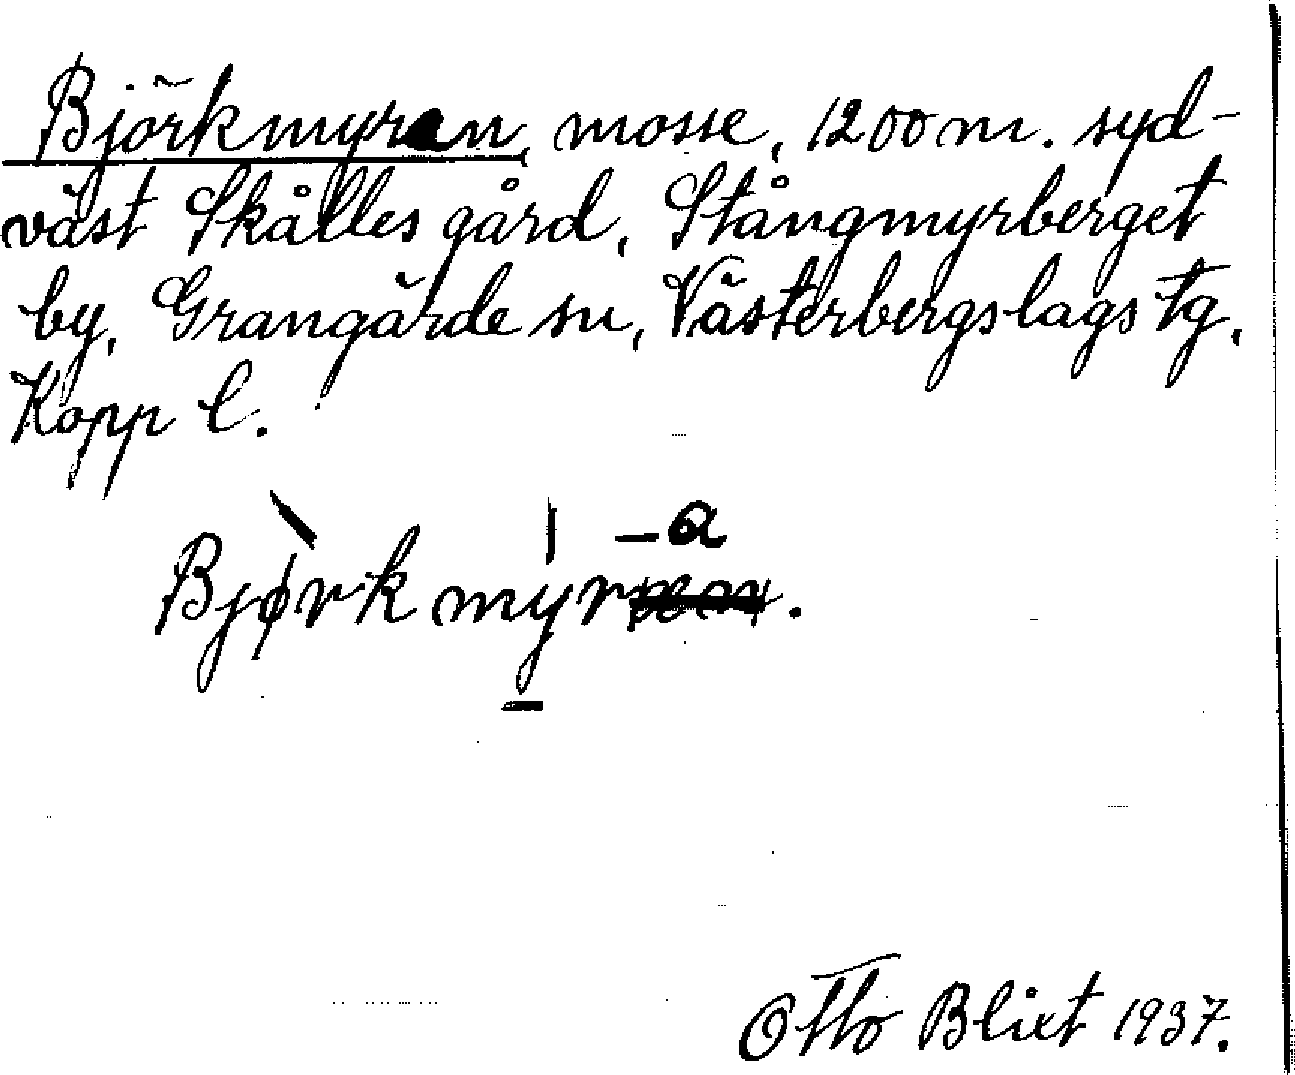 Björkmyran, mosse, 1200 m. syd-
väst Skålles gård, Stångmyrberget
by, Grangärde sn, Västerbergslags tg,
Kopp l.
-a
Bjørkmyr.
Otto Blixt 1937.